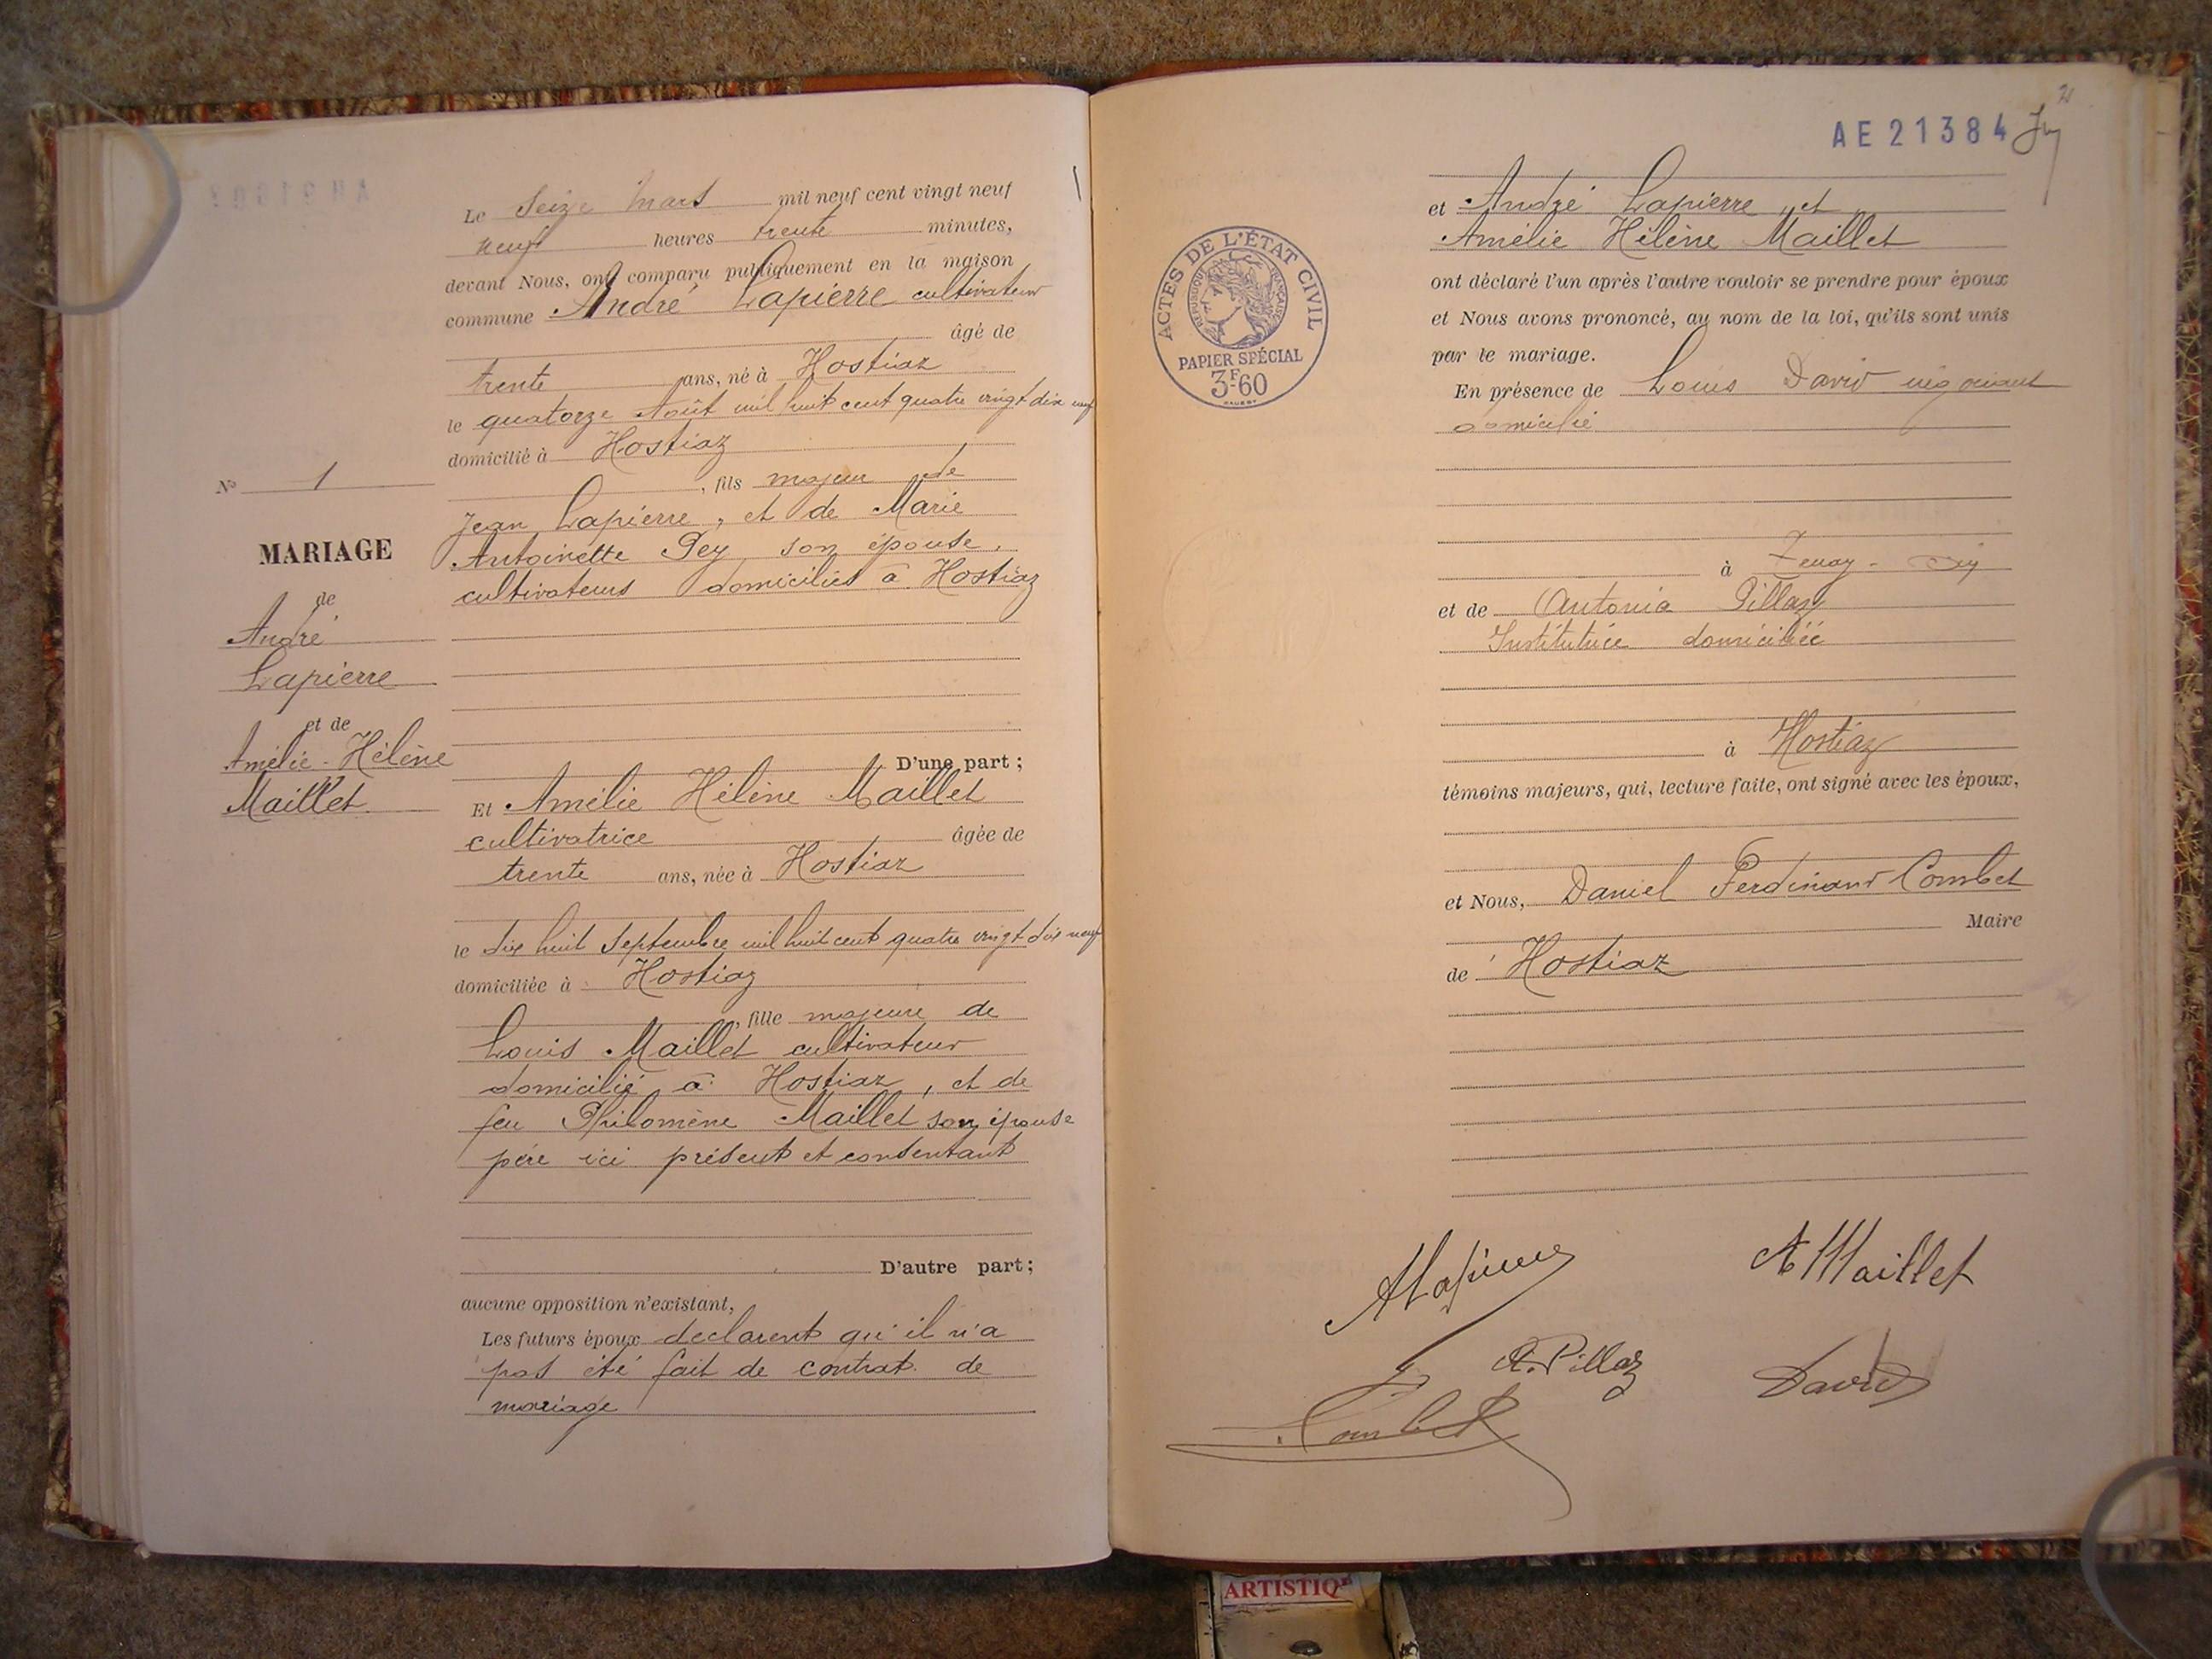 Le Seize Mars mil neuf cent vingt neuf
neuf heures trente minutes,
devant Nous, ont comparu publiquement en la maison
commune André Lapierre cultivateur
âgé de
trente ans, né à Hostiaz
le quatorze Août mil huit cent quatre vingt dix neuf
domicilié à Hostiaz
, fils majeur de
Jean Lapierre, et de Marie
Antoinette Pey son épouse,
cultivateurs domiciliés à Hostiaz
D'une part ;
N° 1
MARIAGE
de
André
Lapierre
et de
Amélie-Hélène
Maillet
Et Amélie Hélène Maillet
cultivatrice âgée de
trente ans, née à Hostiaz
le dix huit Septembre mil huit cent quatre vingt dix neuf
domiciliée à Hostiaz
, fille majeure de
Louis Maillet cultivateur
domicilié à Hostiaz, et de
feu Philomène Maillet son épouse
père ici présent et consentant
D'autre part ;
aucune opposition n'existant,
Les futurs époux declarent qu'il n'a
pas été fait de contrat de
mariage
AE21384
et André Lapierre et
Amélie Hélène Maillet
ont déclaré l'un après l'autre vouloir se prendre pour époux
et Nous avons prononcé, au nom de la loi, qu'ils sont unis
par le mariage.
ACTES DE L'ÉTAT CIVIL
RÉPUBLIQUE FRANÇAISE
PAPIER SPÉCIAL
3F60
En présence de Louis David négociant
domicilié
à
et de Antonia Pillaz
Institutrice domiciliée
à Hostiaz
témoins majeurs, qui, lecture faite, ont signé avec les époux,
et Nous, Daniel Ferdinand Combet
Maire
de Hostiaz
ALapierre
A Maillet
A. Pillaz
David
Combet
ARTISTIQ